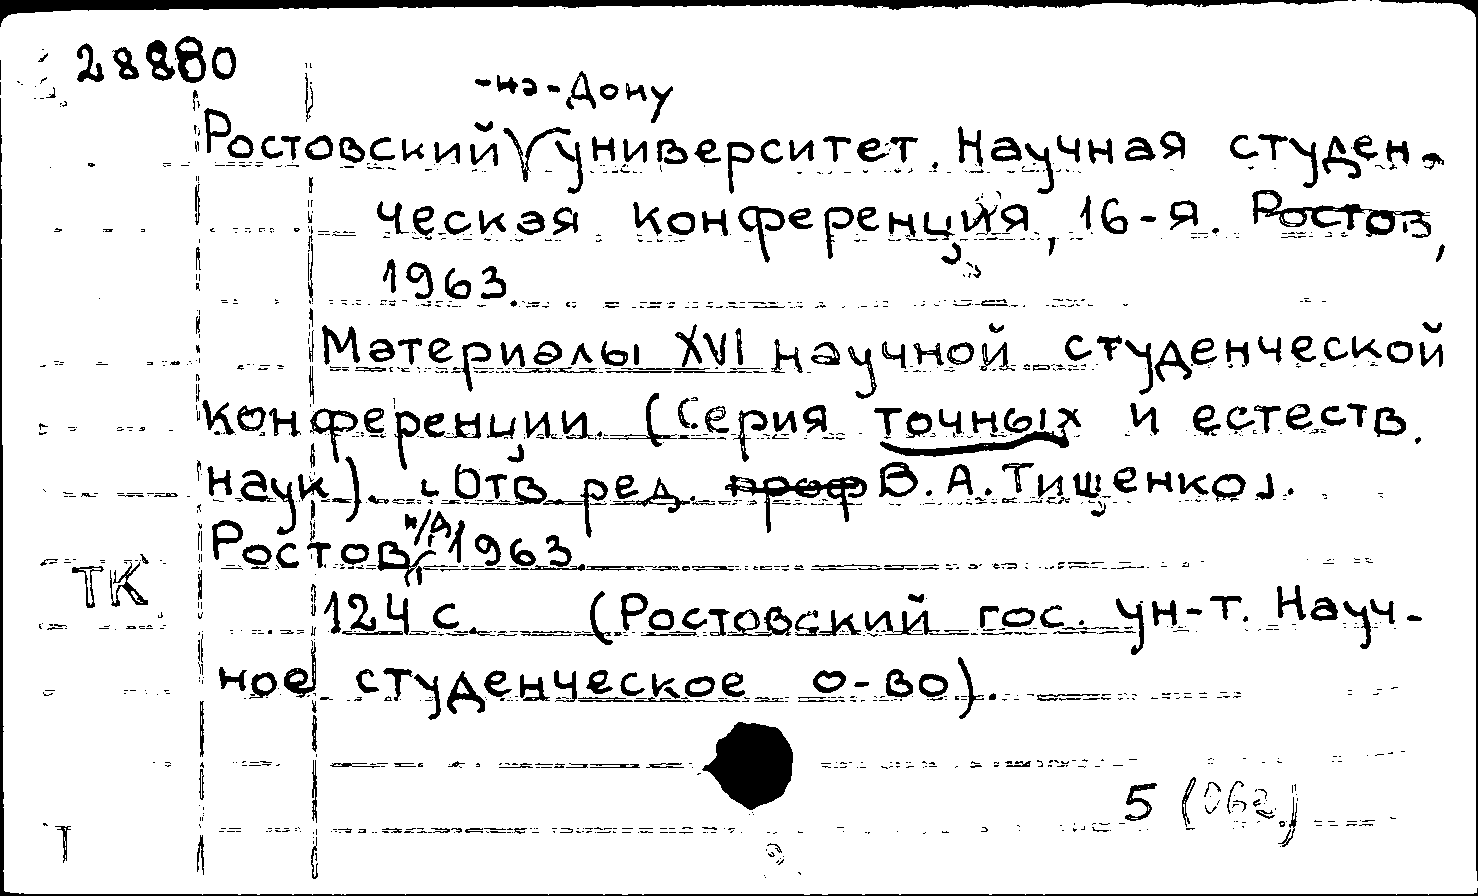 28880
-на-Дону
Ростовский университет. Научная студен-
ческая конференция, 16-я. Ростов,
1963.
Материалы XVI научной студенческой
конференции. (Серия точных и естеств.
наук). [Отв. ред. проф В.А. Тищенко].
н/Д
Ростов 1963.
ТК
124 с. (Ростовский гос. ун-т. Науч-
ное студенческое о-во).
5 (062)
Т